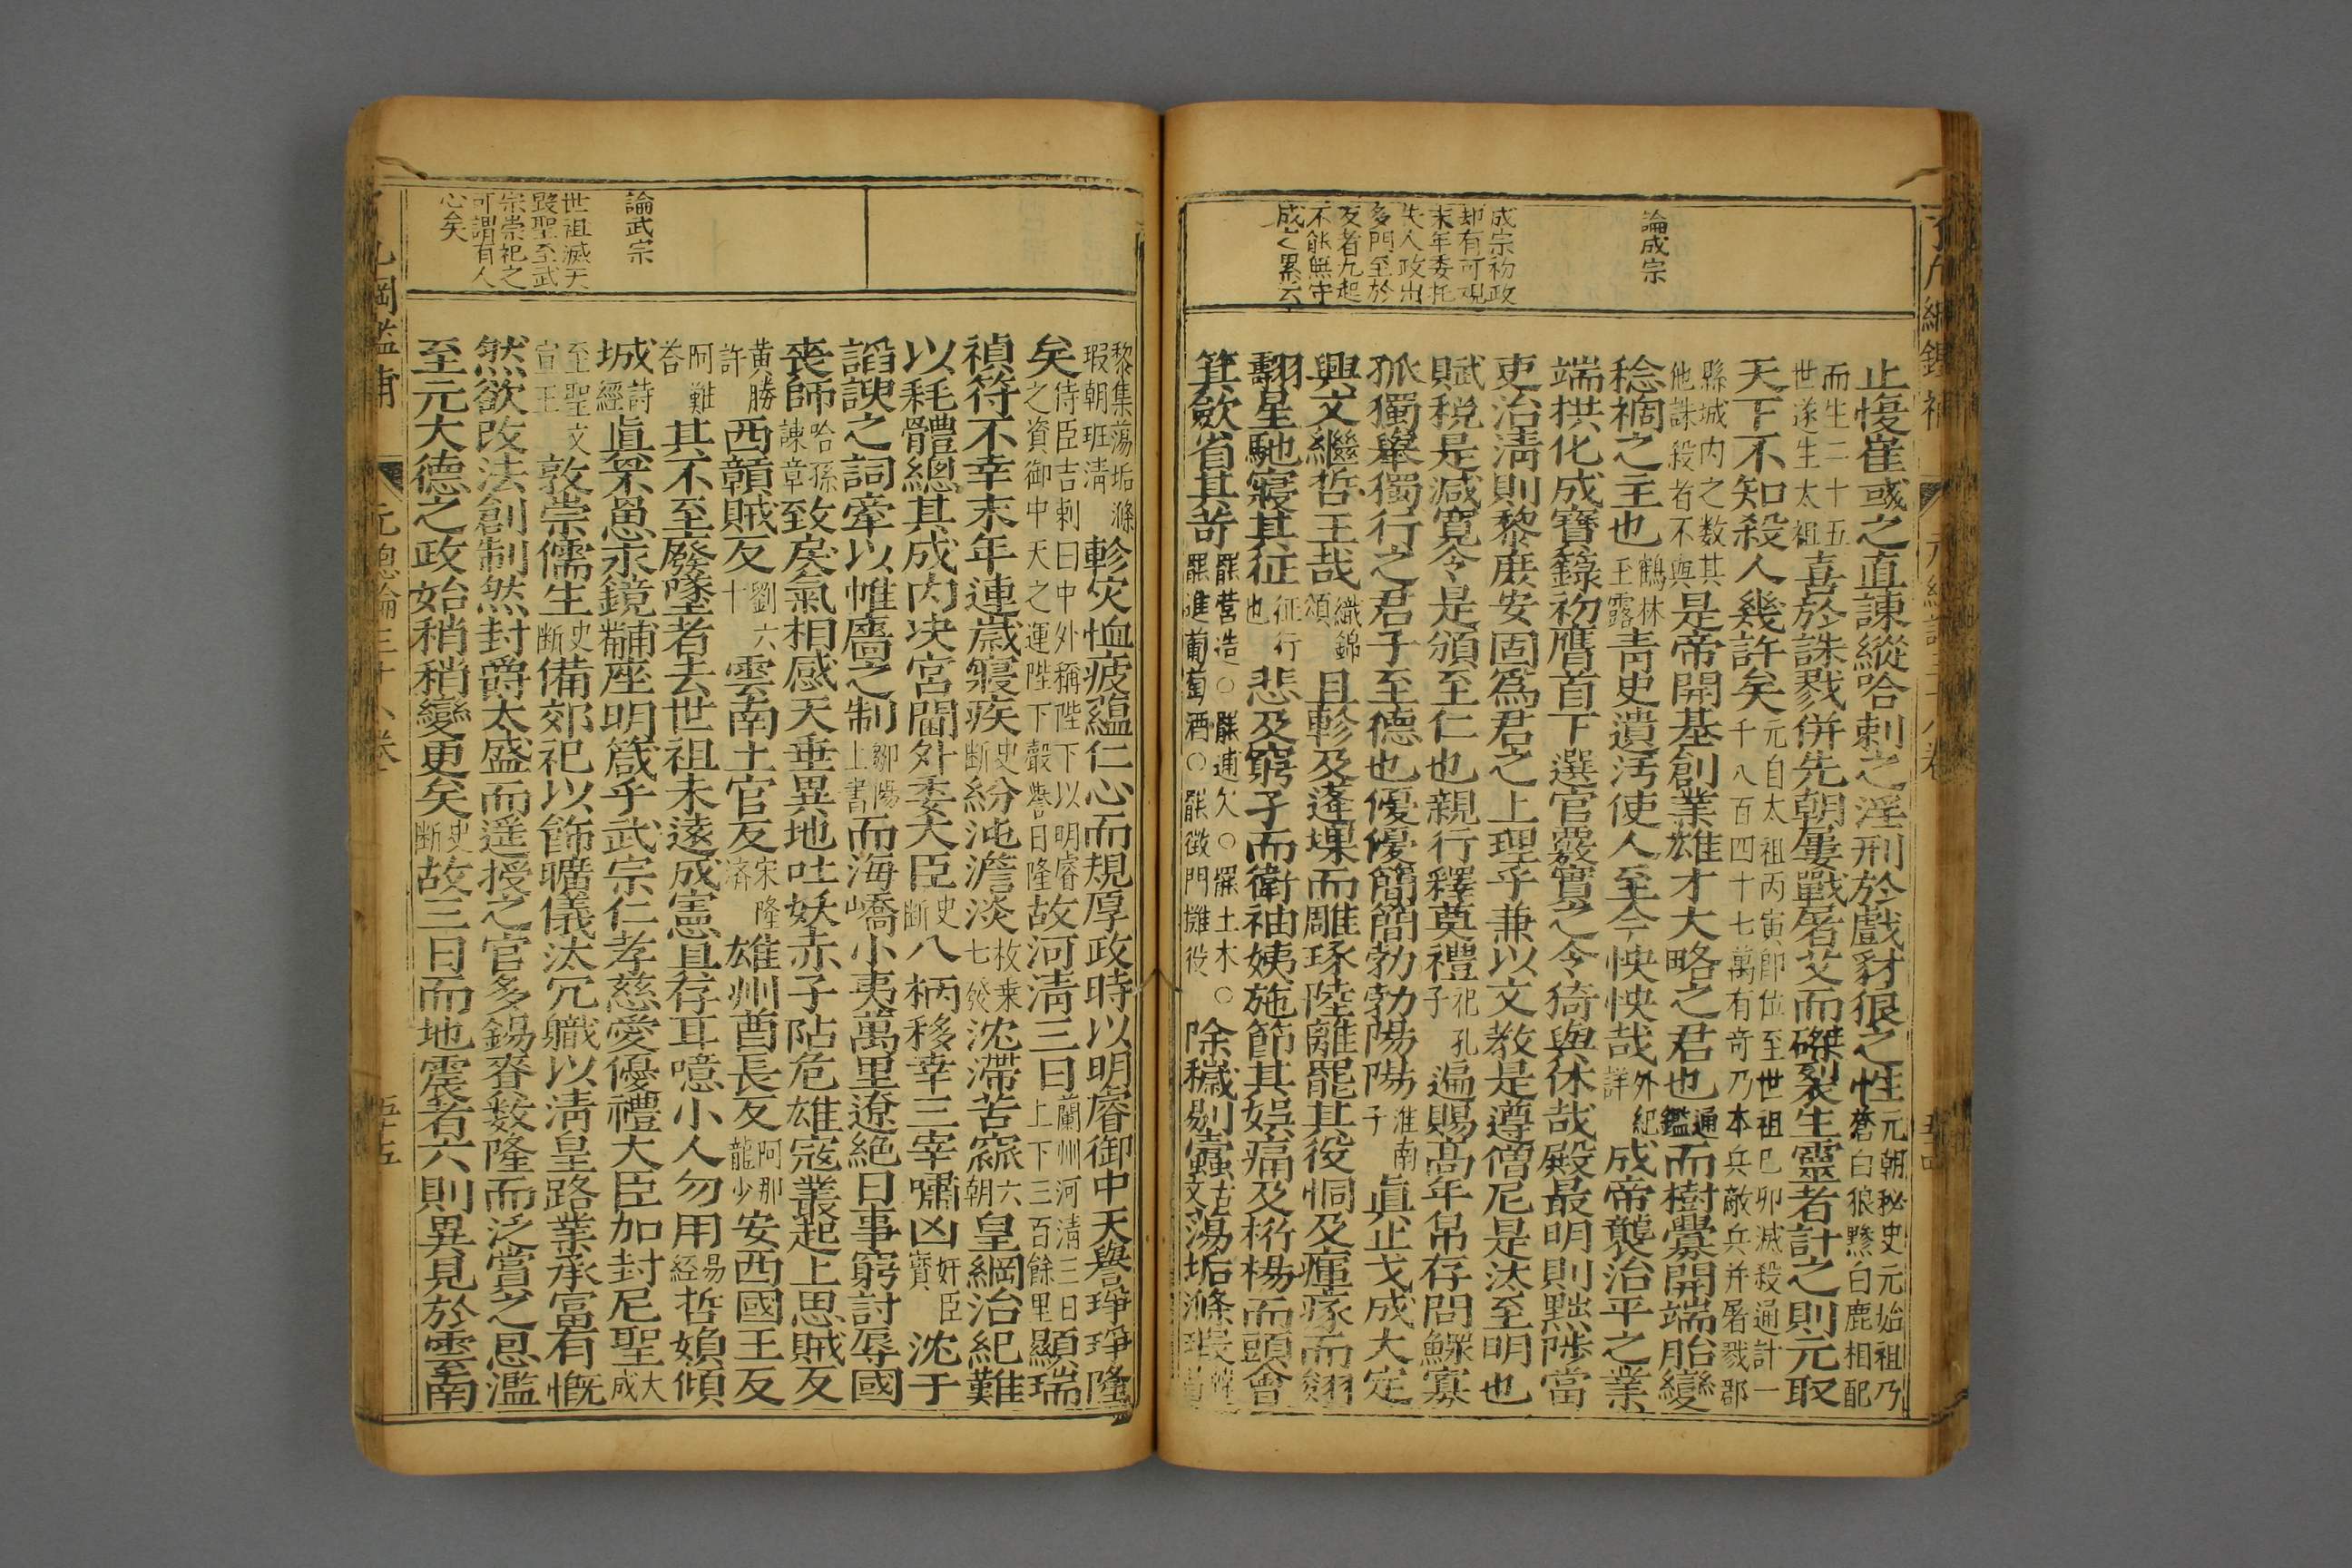 論成宗
成宗初政
却有可观
末年委托
失人政出
多門至於
反者九起
不能無守
成之累云
止愎崔彧之直諫縱哈剌之淫刑於戲豺狼之性元朝秘史元始祖乃蒼白狼黲白鹿相配
而生二十五世遂生太祖喜於誅戮併先朝屢戰屠艾而磔裂生靈者計之則元取
天下不知殺人幾許矣元自太祖丙寅即位至世祖己卯滅殺通計一千八百四十七萬有奇乃本兵敵兵并屠戮郡
縣城内之数其他誅殺者不與是帝開基創業雄才大略之君也通鑑而樹釁開端胎變
稔禍之主也鶴林玉露靑史遺汚使人至今怏怏哉外紀詳成帝襲治平之業
端拱化成寶籙初膺首下選官覈實之令猗與休哉殿最明則黜陟當
吏治淸則黎庶安固爲君之上理乎兼以文教是遵僧尼是汰至明也
賦稅是减寛令是頒至仁也親行釋奠禮祀孔子遍賜高年帛存問鰥寡
孤獨舉獨行之君子至德也優優簡簡勃勃陽陽淮南子眞止戈成大定
興文繼哲王哉織錦頌且軫及蓬堁而雕琢陸離罷其役恫及瘽瘃而翎
翿星馳寢其征征行也悲及窮孑而衛袖姨施節其娯痛及桁楊而頭會
箕斂省其苛罷营造○罷逋欠○罷土木○罷進葡萄酒○罷徵門攤役○除穢剔蠹古文蕩垢滌瑕
黎集蕩垢滌瑕朝班淸軫灾恤疲藴仁心而規厚政時以明睿御中天與譽琤琤隆
矣侍臣吉剌曰中外稱陛下以明睿之資御中天之運陛下聲譽日隆故河淸三日蘭州河清三日上下三百餘里顯瑞
禎符不幸末年連歲寢疾史断紛沌澹淡枚乗七發沈滯苦窳六朝皇綱治紀難
以耗體總其成内决宮閫外委大臣史断八柄移幸三宰嘯凶奸臣寳沈于
謟諛之詞牽以帷廧之制鄒陽上書而海嶠小夷萬里遼絶日事窮討辱國
喪師哈孫諫章致戾氣相感天垂異地吐妖赤子阽危雄寇叢起上思賊反
黄勝許西䩄賊反劉六十雲南土官反宋隆済雄州酋長反阿那龍少安西國王反
阿難荅其不至廢墜者去世祖未遠成憲且存耳噫小人勿用易経哲媍傾
城詩經眞罘罳永鏡黼座明箴乎武宗仁孝慈愛優禮大臣加封尼聖大成
至聖文宣王敦崇儒生史断備郊祀以飾曠儀汰冗軄以淸皇路業承富有慨
然欲改法創制然封爵太盛而遥授之官多錫賚数隆而泛賞之恩濫
至元大德之政始稍稍變更矣史断故三日而地震者六則異見於雲南
論武宗
世祖滅天
毁聖至武
宗崇祀之
可謂有人
心矣